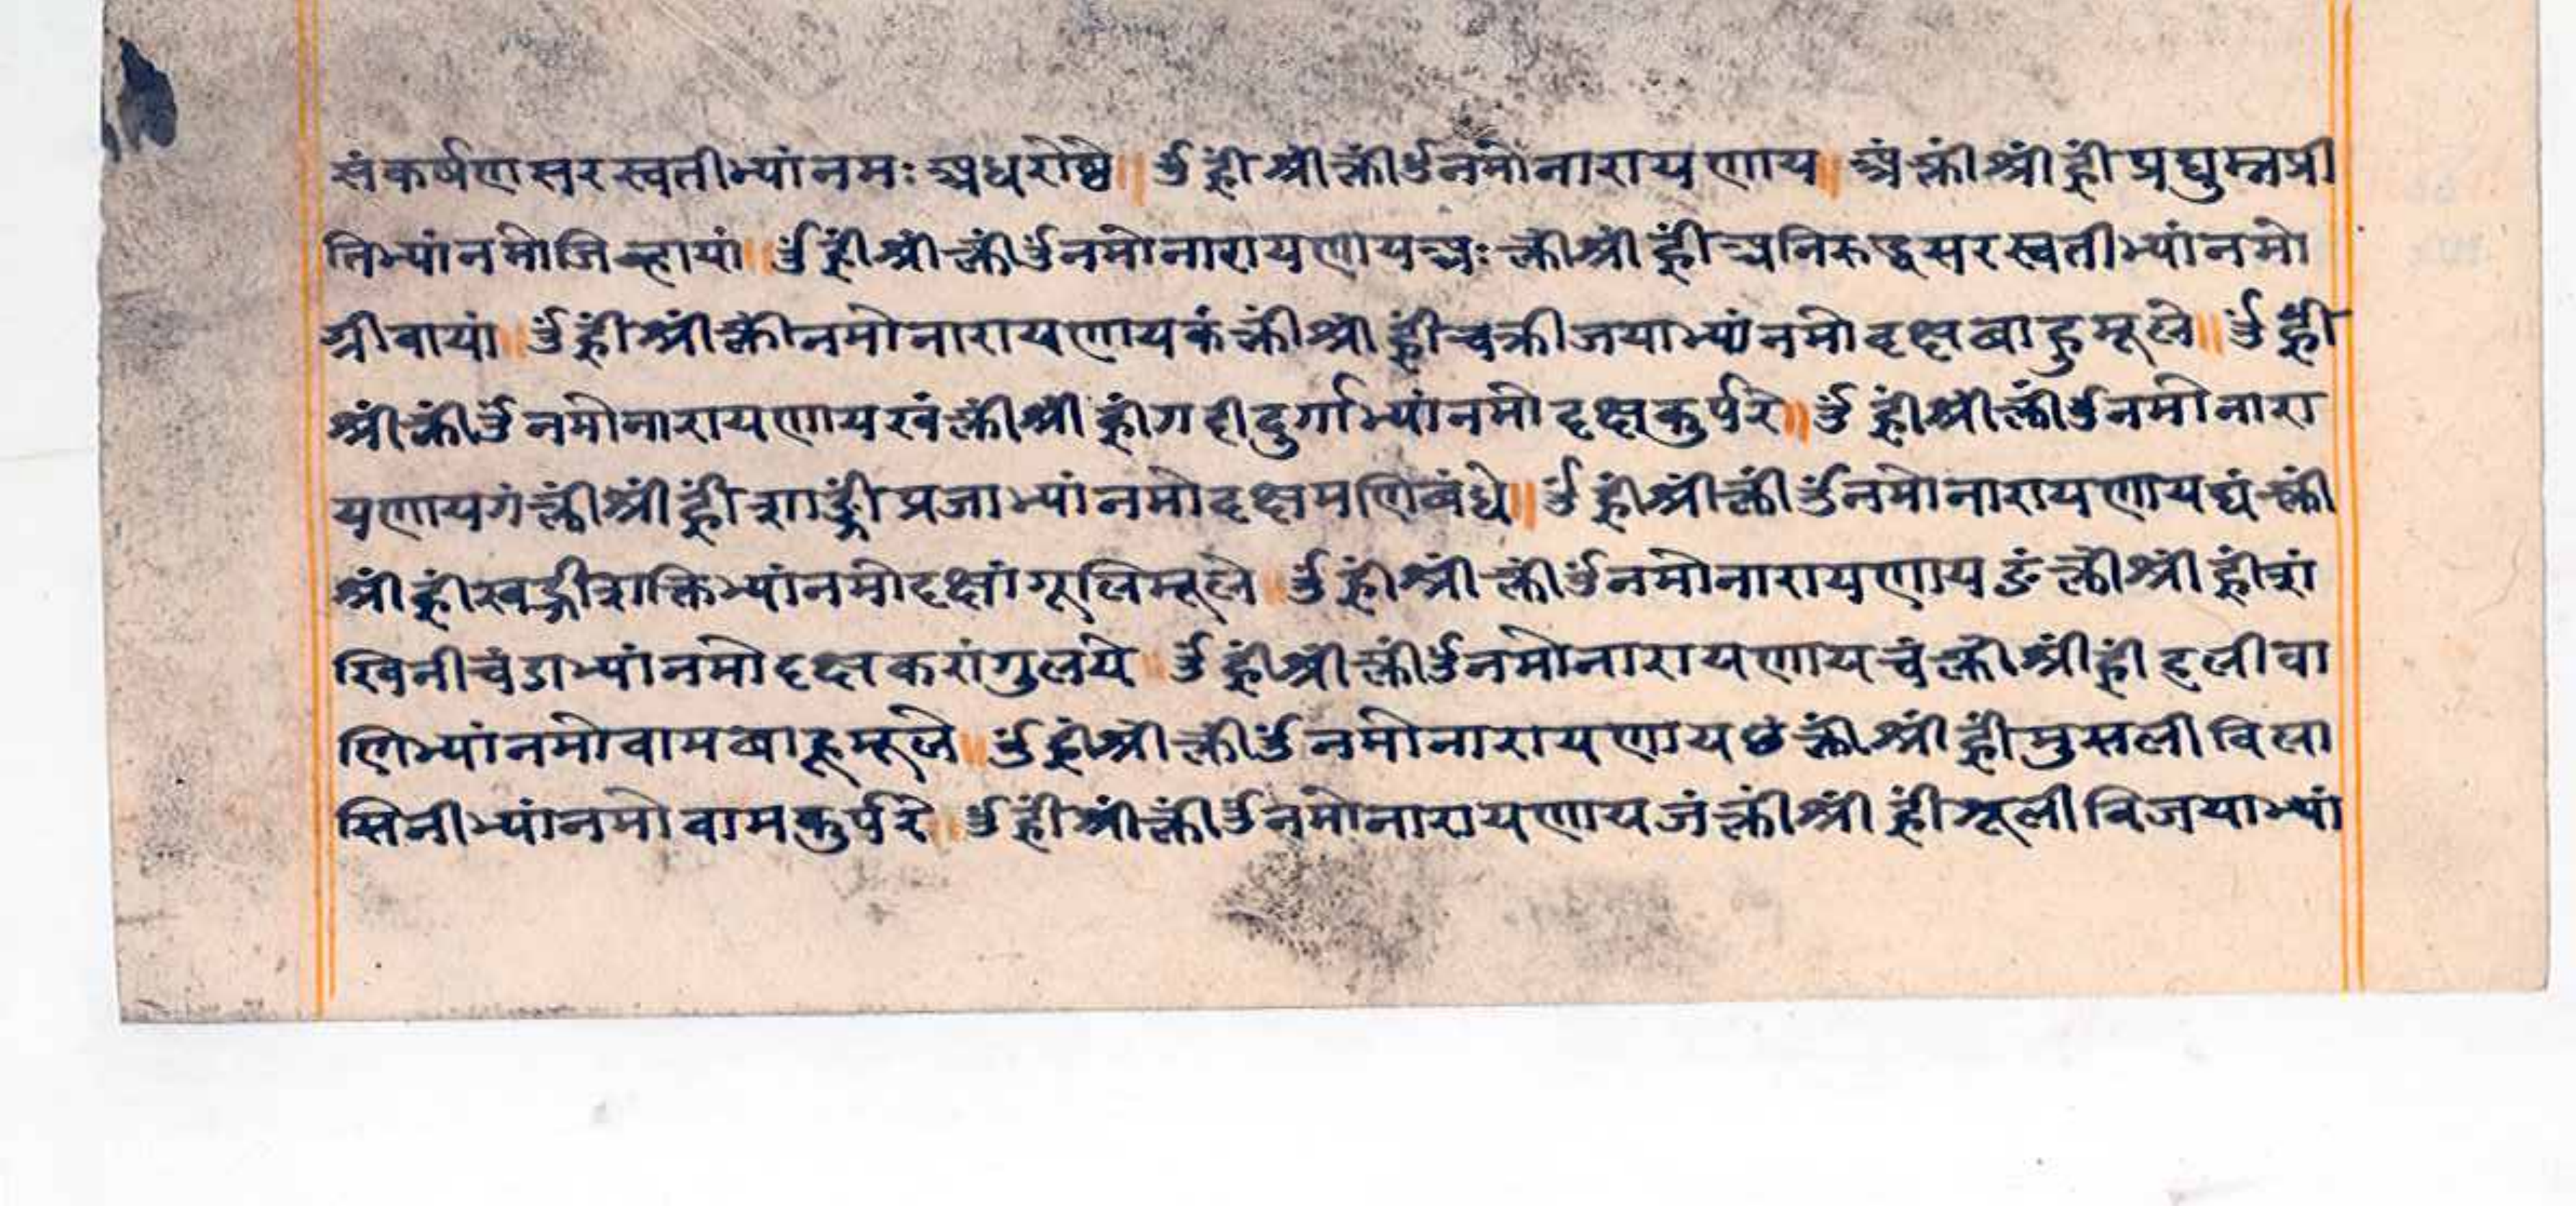 संकर्षणसरस्वतीभ्यांनमः अधरोष्ठे॥ ॐ ह्रीं श्रीं क्लींॐनमोनारायणाय॥ अं क्लीं श्रीं ह्रीं प्रद्युम्नप्री
तिभ्यांनमोजिव्हायां॥ ॐह्रींश्रींक्लींॐनमोनारायणायअः क्लींश्रींह्रींअनिरुद्धसरस्वतीभ्यांनमो
ग्रीवायां॥ ॐह्रींश्रींक्लींनमोनारायणायकंक्लींश्रींह्रींचक्रीजयाभ्यांनमोदक्षबाहुमूले॥ॐह्रीं
श्रींक्लींॐनमोनारायणायखंक्लींश्रींह्रींगदीदुर्गाभ्यांनमोदक्षकुर्परे॥ॐह्रींश्रींक्लींॐनमोनारा
यणायगंक्लींश्रींह्रींशार्ङ्गीप्रजाभ्यांनमोदक्षमणिबंधे॥ॐह्रींश्रींक्लींॐनमोनारायणायघंक्लीं
श्रींह्रींखड्गीशक्तिभ्यांनमोदक्षांगूलिमूले॥ ॐह्रींश्रींक्लींॐनमोनारायणायङंक्लींश्रींह्रींशं
खिनीचंडाभ्यांनमोदक्षकरांगुलये॥ ॐह्रींश्रींक्लींॐनमोनारायणायचंक्लींश्रींह्रींहलीवा
णिभ्यांनमोवामबाहूमूले॥ ॐह्रींश्रींक्लींॐनमोनारायणायछंक्लींश्रींह्रींमुसलीविला
सिनीभ्यांनमोवामकुर्परे॥ ॐह्रींश्रींक्लींॐनमोनारायणायजंक्लींश्रींह्रींशूलीविजयाभ्यां